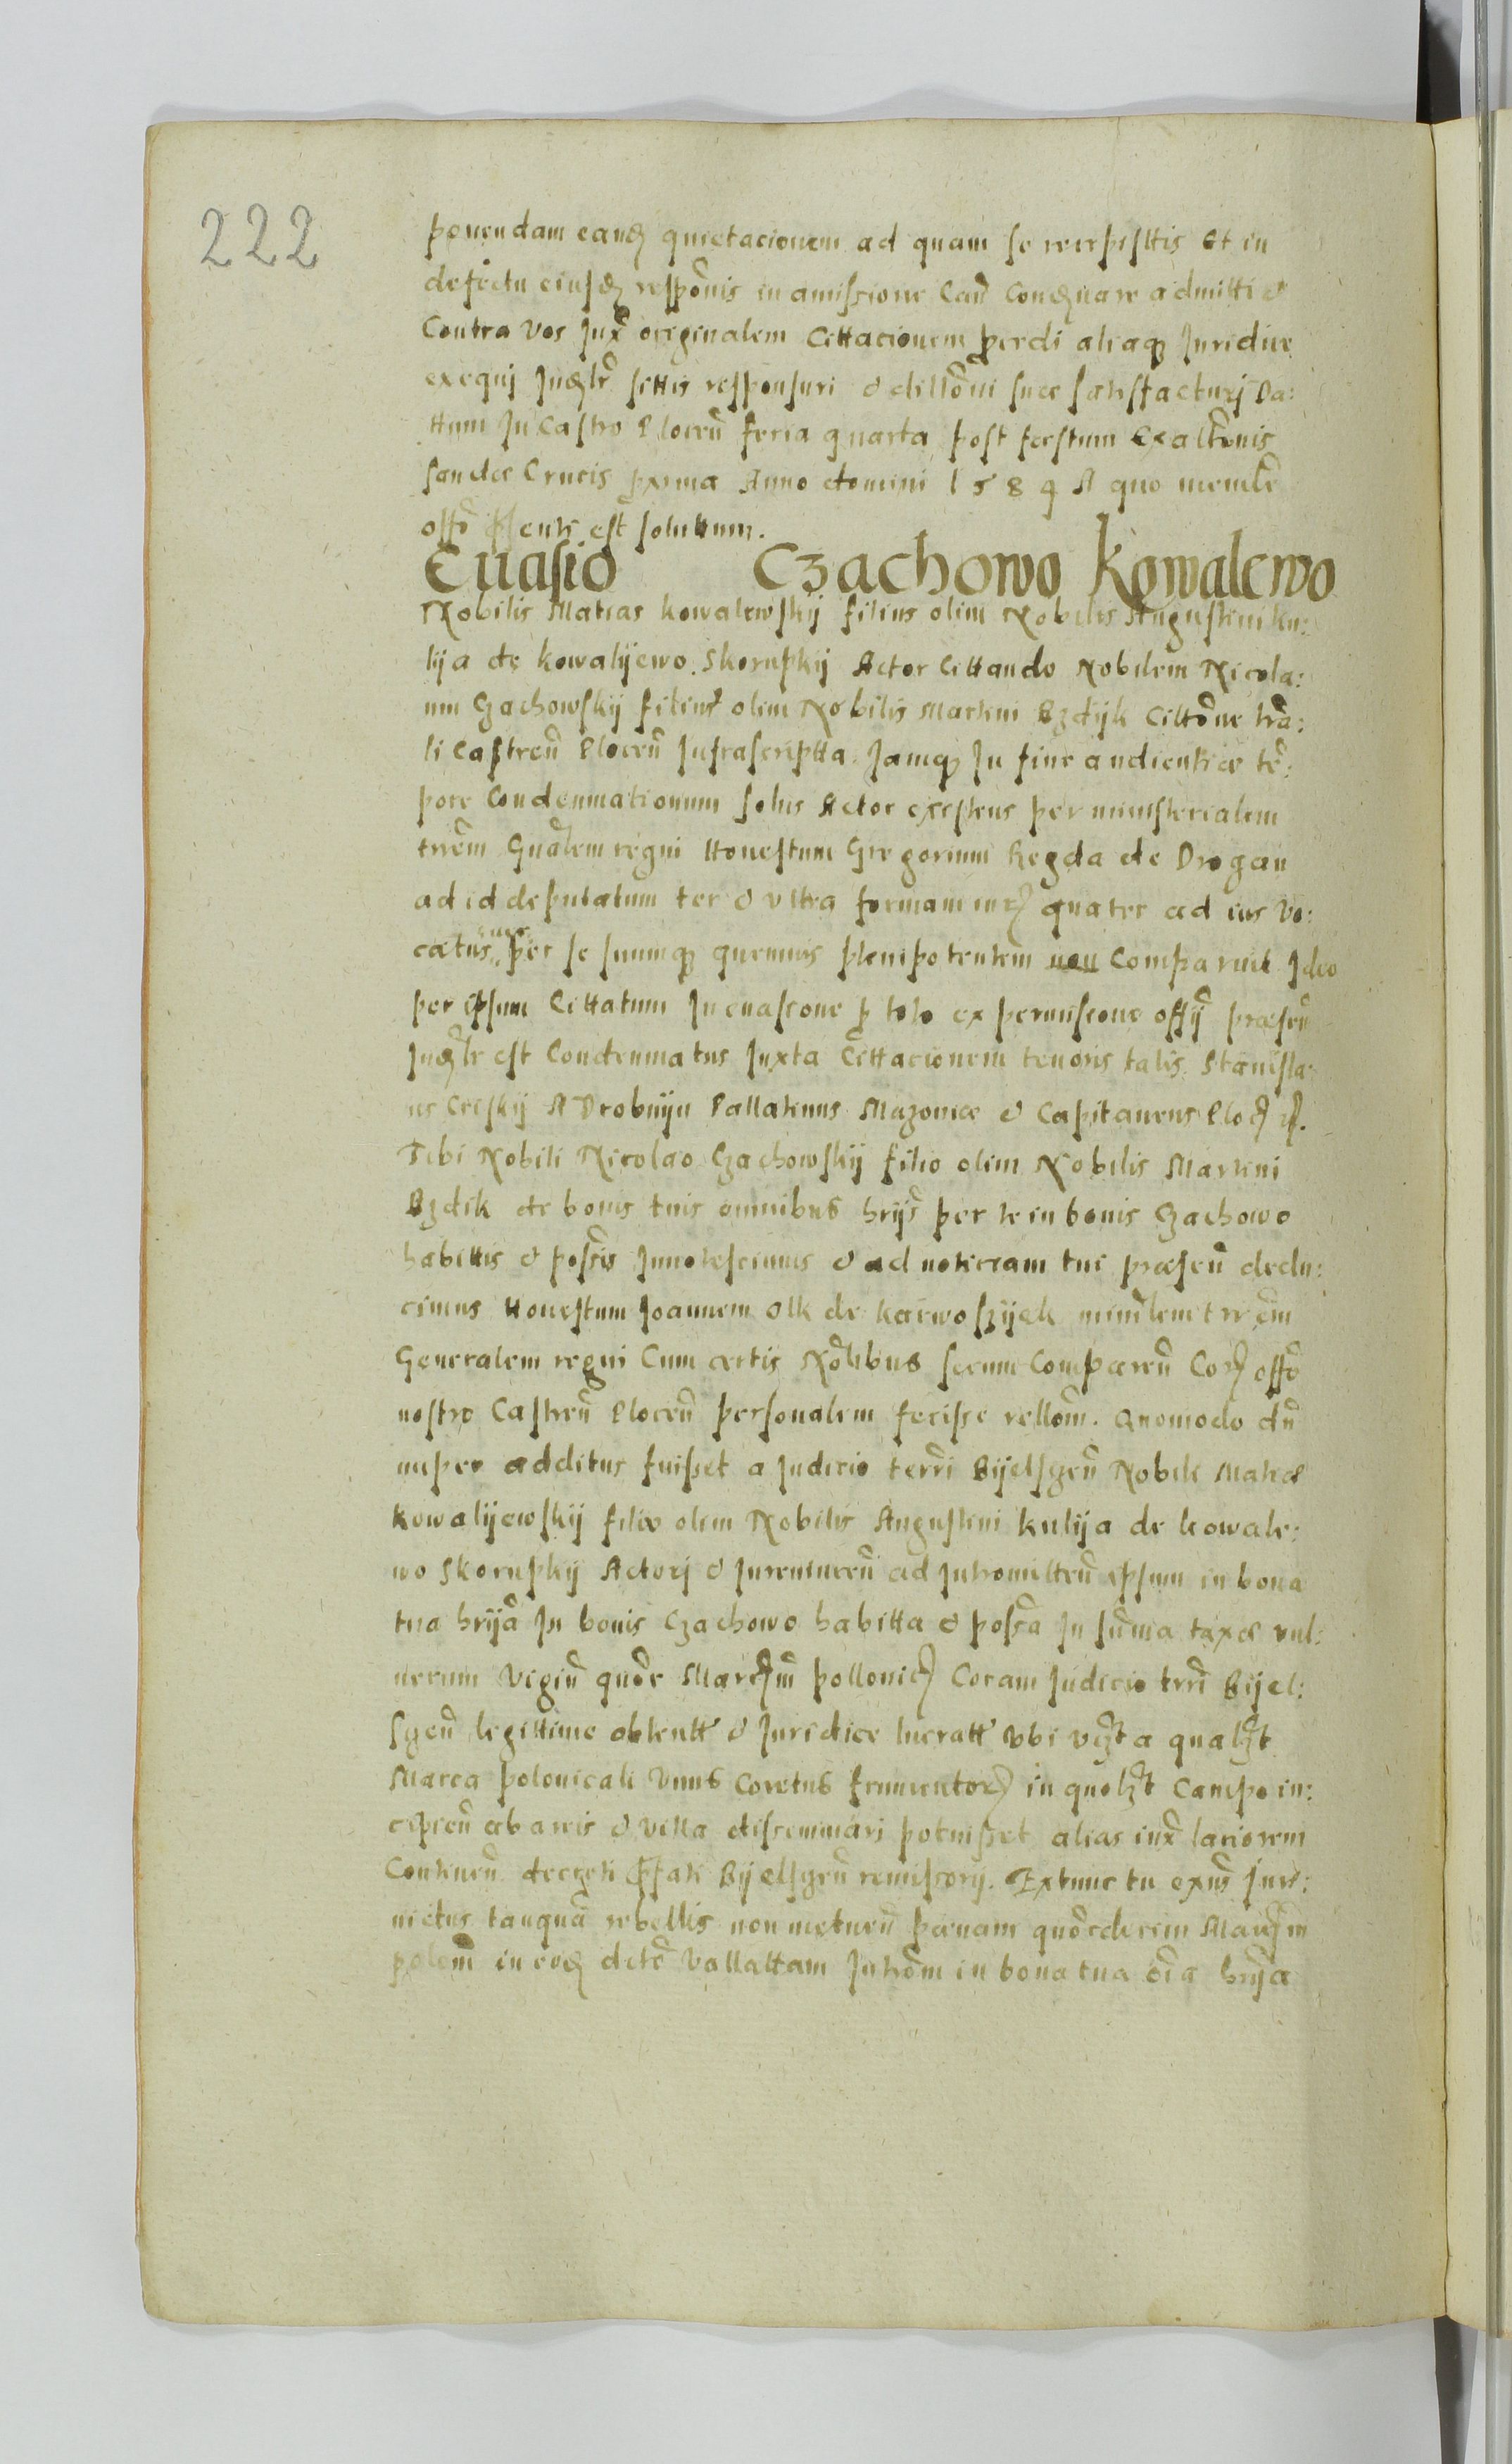 222
ponendam eandꝫ quietacionem ad quam se recepisttis Et in
defectu eiusdꝫ respōnis in amissione Cau̅ Condꝫnare admitti &
Contra vos Juxᵃ originalem Cittacionem ꝑcedi aliaqꝫ Juridice
exequj Judꝫlr sittis responsuri & dillōni suæ satisfacturj Da:
ttum In Castro Plocen̅ feria quarta post festum Exaltōnis
sanctæ Crucis pxima Anno domini 1584 A quo memle
offō pn̅enti est soluttum.
Evasio Czachowo Kowalewo
Nobilis Matias kowalewskij filius olim Nobilis Augustini ku:
lija de kowalijewo Skorupkij Actor Cittando Nobilem Nicola:
um Czachowskij filiuƺ olim Nobilis Martini Bzdijk Cittōne lrā:
li Castren̅ Ploceñ Infrascriptta Jamqꝫ In fine audientiæ tē:
pore Condemnationum solus Actor existens per ministerialem
trrēm Gnālem regni Honestum Gregorium Regda de Drogan
ad id deputatum ter & ultra formam iurꝭ quater ad ius vo:
catus per se suumqꝫ quemuis plenipotentem non Comparuit Ideo
per ipsum Cittatum In euasione ꝓ toto ex permissione offij præsen̅
Judꝫlr est Condemnatus Juxta Cittacionem tenoris talis Stanisla:
us Criskij A Drobnijn Pallatinus Mazoniæ & Capitaneus Plocꝭ
Tibi Nobili Nicolao Czachowskij filio olim Nobilis Martini
Bzdik de bonis tuis omnibus hrijs̄ per te in bonis Czachowo
habittis & poss̄is Innotescimus & ad noticiam tui præsen̅ dedu:
cimus Honestum Joannem Olk de karwoszijek minr̄lem trrēm
Generalem regni Cum certis Nōlibus secum Comparen̅ Corꝭ offō
nostro Castren̅ Plocen̅ personalem fecisse rellōm. Quomodo dū
nuper additus fuisset a Judicio terri Bijelszen̅ Nobili Matiæ
kowalijewskij filio olim Nobilis Augustini kulija de kowale:
wo Skorupkij Actorj & Juventuren̅ ad Intromitten̅ ipsum in bona
tua hrijā In bonis Czachowo habitta & poss̄a In sum̄a taxæ vul:
nerum Vigin̅ quōr Marcꝭm̅ pollonicꝭ Coram Judicio trri̅ Bijel:
szen̅ legittime obtentt & Juridice lucratt Vbi vꝫt a qualꝫt
Marca polonicali Vnus Coretus frumentorꝭ in quolꝫt Campo in:
cipien̅ ab areis & villa disseminari potuisset alias iuxᵃ laciorem
Continen̅ decreti p̅fati Bijelszen̅ remissorij. Extunc tu exn̅s Jure:
uictus tanquā rebellis non metuen̅ pœnam quōrdecim Marcꝭm
polem̅ in eodꝫ dctō Vallattam Intrōm in bona tua oīa hrīja